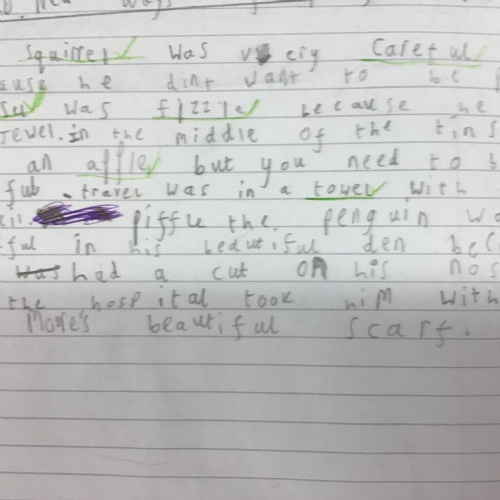 squirrel was very careful
suse he dint want to be
was fizzle because he
Jewel. in the middle of the tins
an affle but you need to b
ful. travel was in a towel with
piffle the penguin wa
ful in his beautiful den bec
was had a cut on his nos
the hospital took him with
Mone's beautiful scarf.